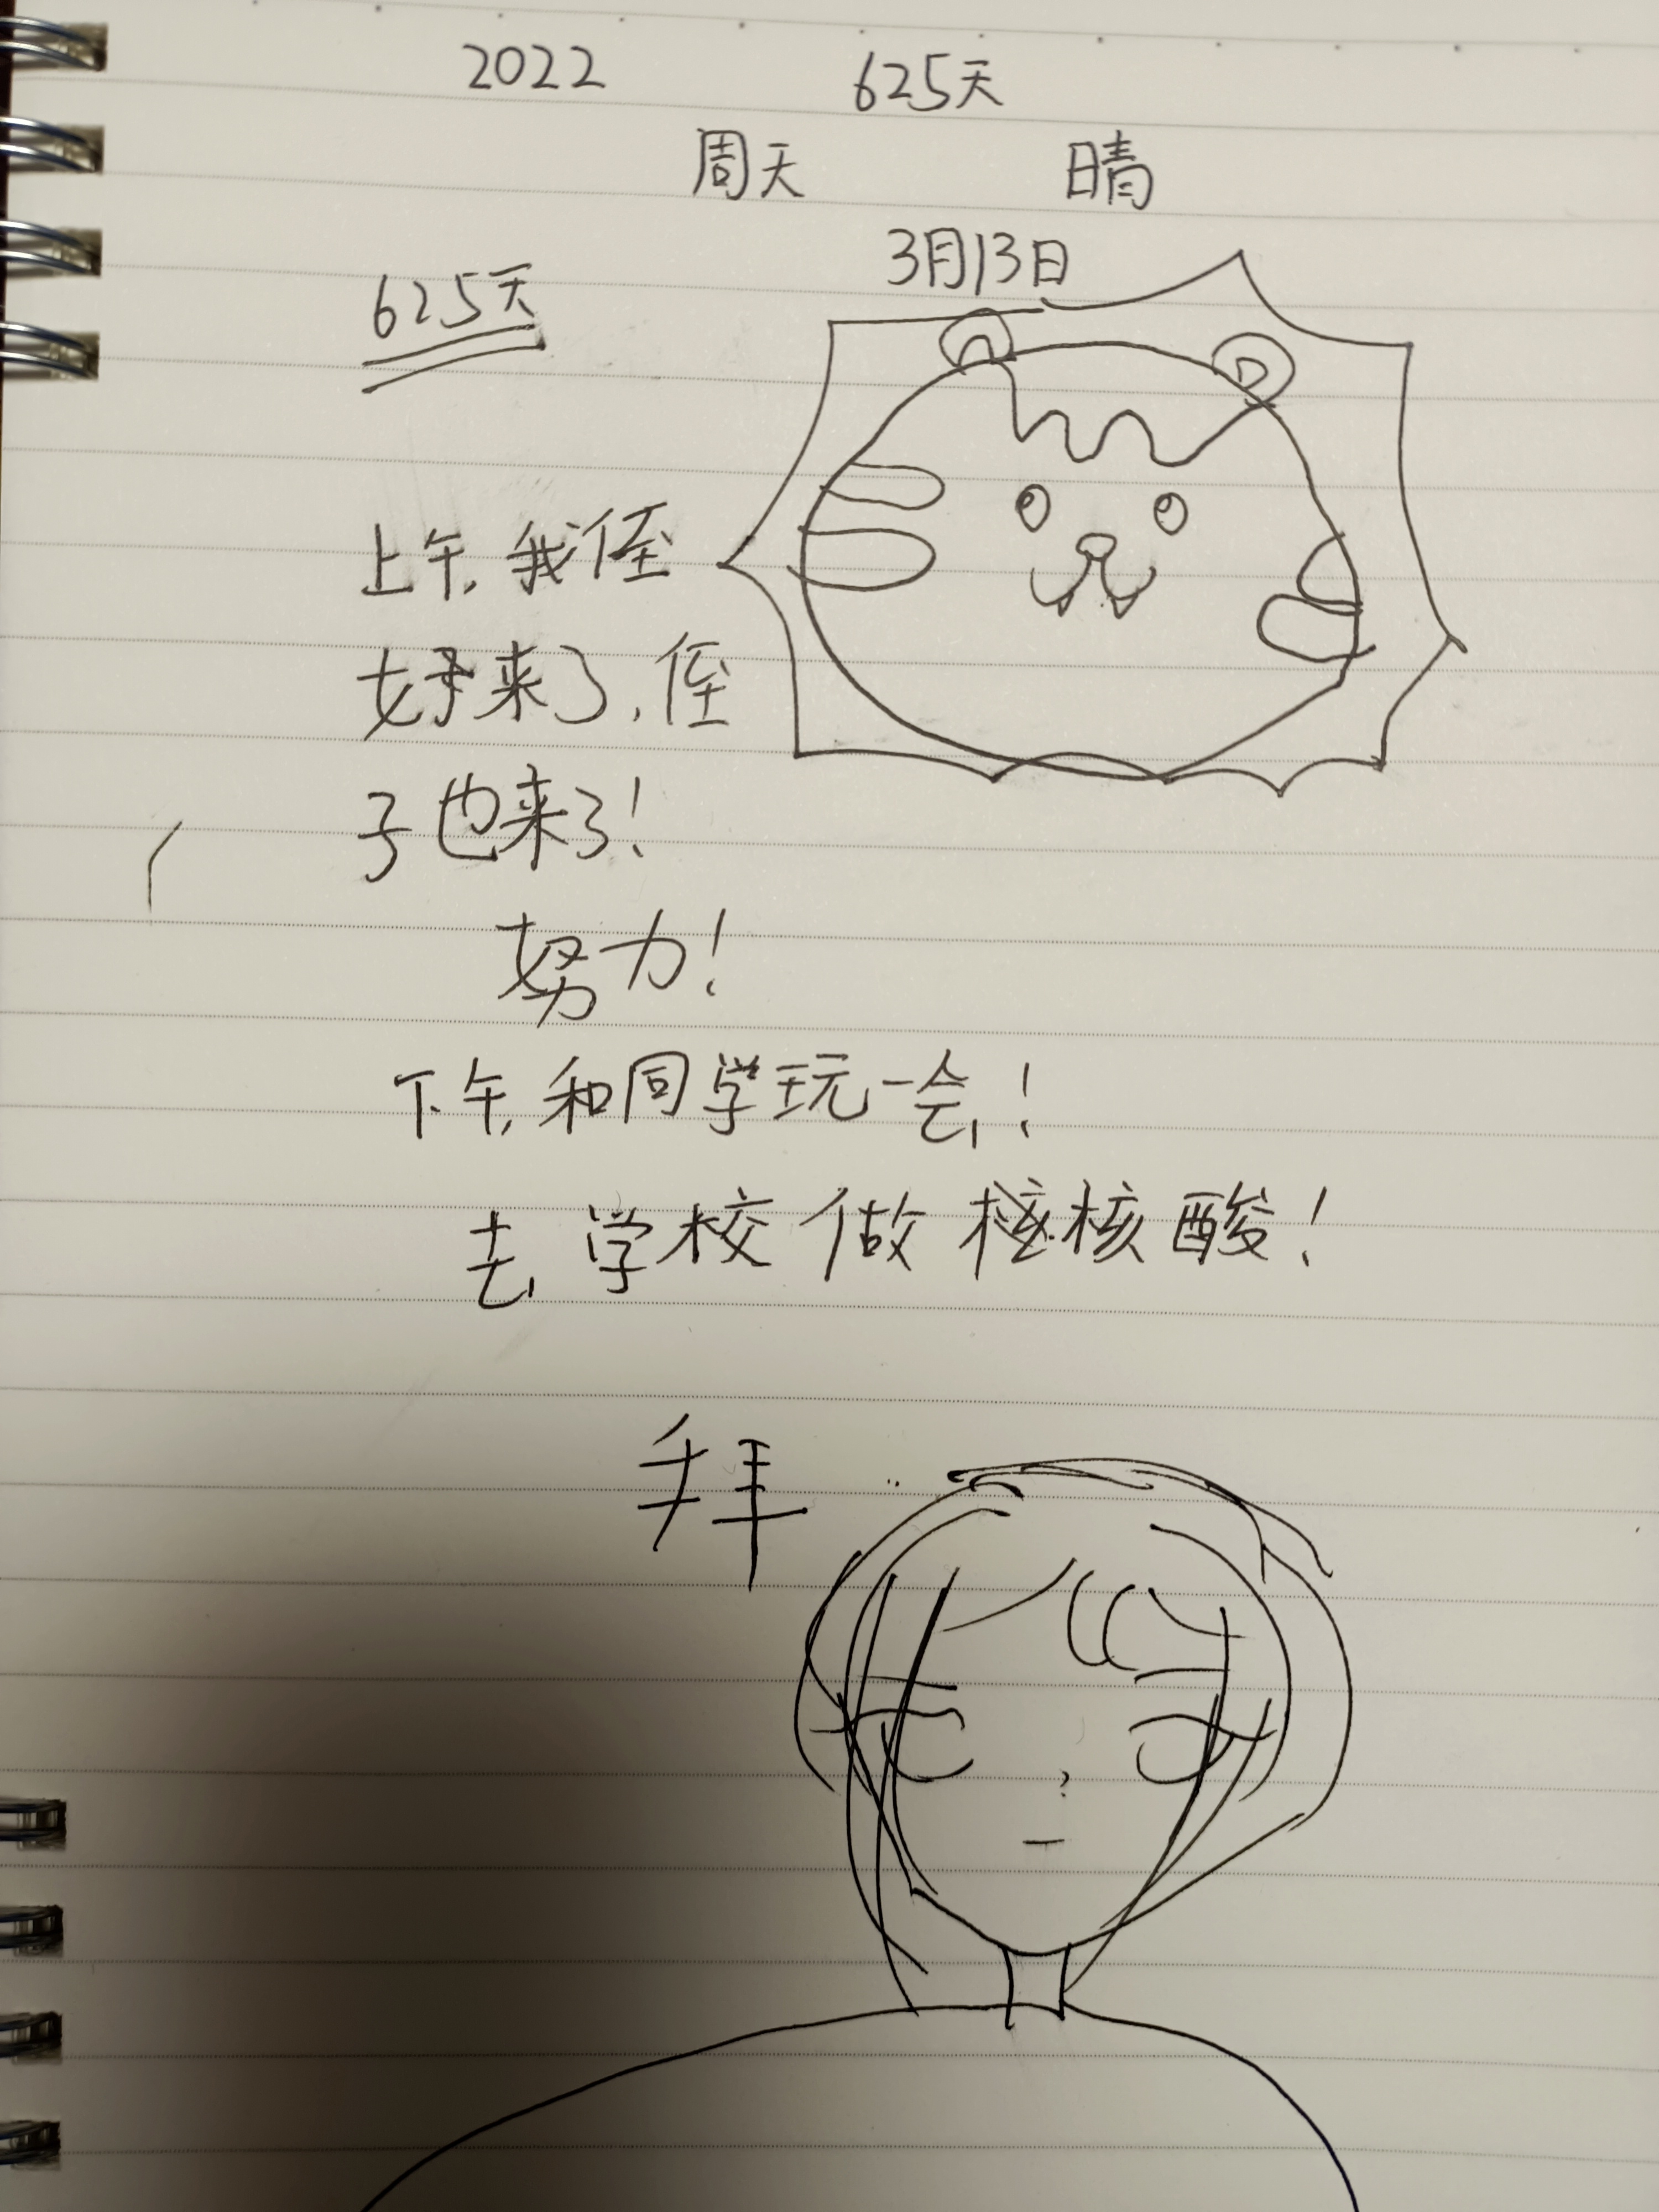 2022 625天
周天 晴
3月13日
625天
上午,我侄
好来了,侄
子也来了!
努力!
下午,和同学玩一会!
去学校做核酸!
拜